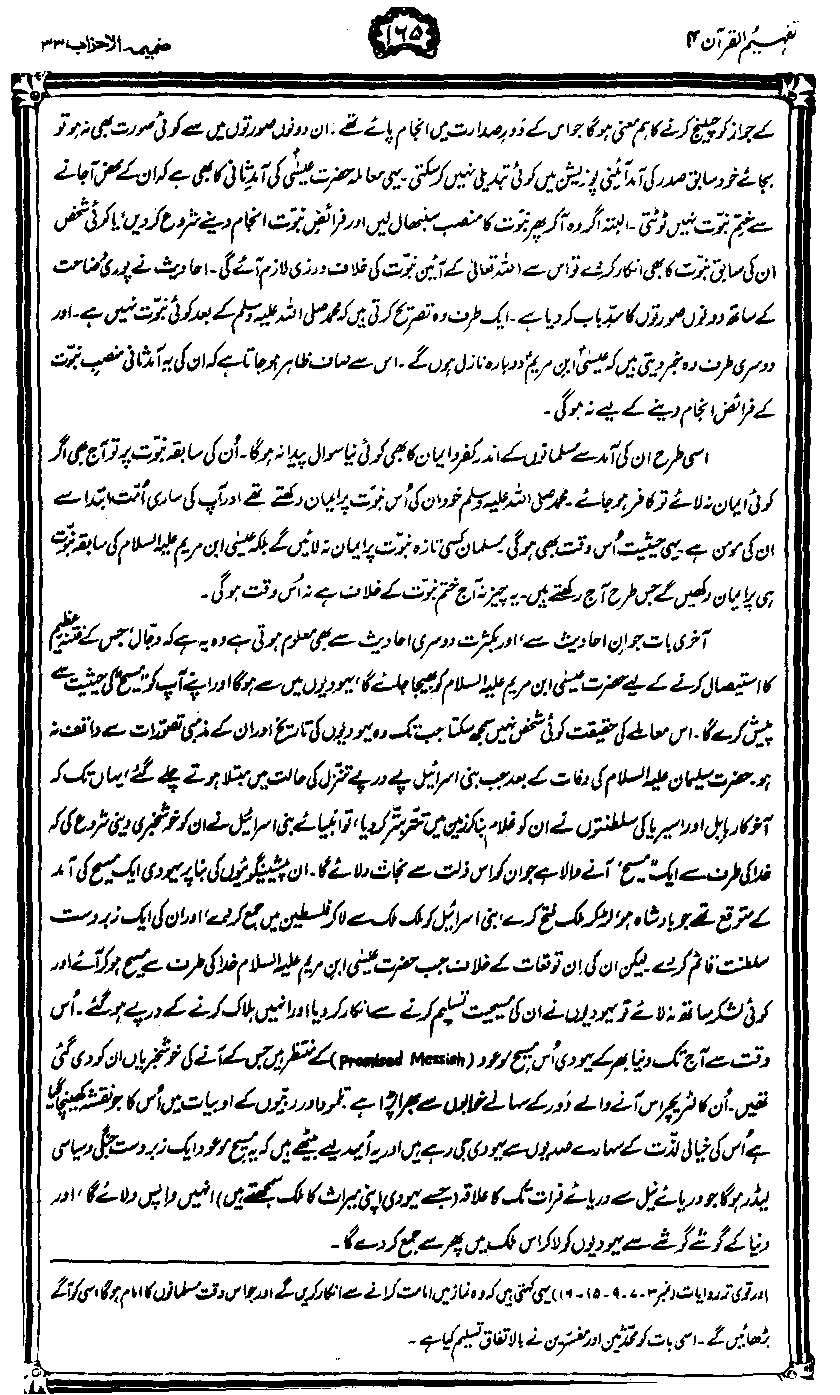 تفہیم القرآن ۴
۱۶۵
ضمیمہ۔ الاحزاب ۳۳
کے جواز کو چیلنج کرنے کا ہم معنی ہوگا جو اس کے دَورِ صدارت میں انجام پائے تھے۔ ان دونوں صورتوں میں سے کوئی صورت بھی نہ ہو تو
بجائے خود سابق صدر کی آمد آئینی پوزیشن میں کوئی تبدیلی نہیں کر سکتی۔ یہی معاملہ حضرت عیسیٰؑ کی آمدِ ثانی کا بھی ہے کہ ان کے محض آجانے
سے ختمِ نبوّت نہیں ٹوٹتی۔ البتہ اگر وہ آکر پھر نبوّت کا منصب سنبھال لیں اور فرائضِ نبوّت انجام دینے شروع کر دیں، یا کوئی شخص
ان کی سابق نبوّت کا بھی انکار کر دے تو اس سے اللہ تعالیٰ کے آئینِ نبوّت کی خلاف ورزی لازم آئے گی۔ احادیث نے پوری وضاحت
کے ساتھ دونوں صورتوں کا سدِّ باب کر دیا ہے۔ ایک طرف وہ تصریح کرتی ہیں کہ محمد صلی اللہ علیہ وسلم کے بعد کوئی نبوّت نہیں ہے۔ اور
دوسری طرف وہ خبر دیتی ہیں کہ عیسیٰ ابن مریمؑ دوبارہ نازل ہوں گے۔ اس سے صاف ظاہر ہو جاتا ہے کہ ان کی یہ آمدِ ثانی منصبِ نبوّت
کے فرائض انجام دینے کے لیے نہ ہوگی۔
اسی طرح ان کی آمد سے مسلمانوں کے اندر کفر و ایمان کا بھی کوئی نیا سوال پیدا نہ ہوگا۔ اُن کی سابقہ نبوّت پر تو آج بھی اگر
کوئی ایمان نہ لائے تو کافر ہو جائے۔ محمد صلی اللہ علیہ وسلم خود ان کی اُس نبوّت پر ایمان رکھتے تھے اور آپ کی ساری اُمّت ابتدا سے
ان کی مومن ہے۔ یہی حیثیت اُس وقت بھی ہوگی۔ مسلمان کسی تازہ نبوّت پر ایمان نہ لائیں گے بلکہ عیسیٰ ابن مریم علیہ السلام کی سابقہ نبوّت
ہی پر ایمان رکھیں گے جس طرح آج رکھتے ہیں۔ یہ چیز نہ آج ختمِ نبوّت کے خلاف ہے نہ اُس وقت ہوگی۔
آخری بات جو ان احادیث سے، اور بکثرت دوسری احادیث سے بھی معلوم ہوتی ہے وہ یہ ہے کہ دجّال، جس کے فتنۂ عظیم
کا استیصال کرنے کے لیے حضرت عیسیٰ ابن مریم علیہ السلام کو بھیجا جائے گا، یہودیوں میں سے ہوگا اور اپنے آپ کو "مسیح" کی حیثیت سے
پیش کرے گا۔ اس معاملے کی حقیقت کوئی شخص نہیں سمجھ سکتا جب تک وہ یہودیوں کی تاریخ اور ان کے مذہبی تصوّرات سے واقف نہ
ہو۔ حضرت سلیمان علیہ السلام کی وفات کے بعد جب بنی اسرائیل پے در پے تنزّل کی حالت میں مبتلا ہوتے چلے گئے، یہاں تک کہ
آخر کار بابل اور اسیریا کی سلطنتوں نے ان کو غلام بنا کر زمین میں تتّر بتّر کر دیا، تو انبیائے بنی اسرائیل نے ان کو خوشخبری دینی شروع کی کہ
خدا کی طرف سے ایک "مسیح" آنے والا ہے جو ان کو اس ذلت سے نجات دلائے گا۔ ان پیشینگوئیوں کی بنا پر یہودی ایک مسیح کی آمد
کے متوقع تھے جو بادشاہ ہو، لڑ کر ملک فتح کرے، بنی اسرائیل کو ملک ملک سے لا کر فلسطین میں جمع کر دے، اور ان کی ایک زبردست
سلطنت قائم کر دے۔ لیکن ان کی ان توقعات کے خلاف جب حضرت عیسیٰ ابن مریم علیہ السلام خدا کی طرف سے مسیح ہو کر آئے اور
کوئی لشکر ساتھ نہ لائے تو یہودیوں نے ان کی مسیحیت تسلیم کرنے سے انکار کر دیا اور انہیں ہلاک کرنے کے درپے ہو گئے۔ اُس
وقت سے آج تک دنیا بھر کے یہودی اُس مسیح موعود (Promised Messiah) کے منتظر ہیں جس کے آنے کی خوشخبریاں ان کو دی گئی
تھیں۔ اُن کا لٹریچر اس آنے والے دَور کے سہانے خوابوں سے بھرا پڑا ہے۔ تلمود اور ربیّوں کے ادبیات میں اُس کا جو نقشہ کھینچا گیا
ہے اُس کی خیالی لذّت کے سہارے صدیوں سے یہودی جی رہے ہیں اور یہ اُمید لیے بیٹھے ہیں کہ یہ مسیح موعود ایک زبردست جنگی و سیاسی
لیڈر ہوگا جو دریائے نیل سے دریائے فرات تک کا علاقہ (جسے یہودی اپنی میراث کا ملک سمجھتے ہیں) انہیں واپس دلائے گا، اور
دنیا کے گوشے گوشے سے یہودیوں کو لا کر اس ملک میں پھر سے جمع کر دے گا۔
اور قوی تر روایات (نمبر ۳۔۷۔۹۔۱۵۔۱۶) یہی کہتی ہیں کہ وہ نماز میں امامت کرانے سے انکار کریں گے اور جو اس وقت مسلمانوں کا امام ہوگا اسی کو آگے
بڑھائیں گے۔ اسی بات کو محدّثین اور مفسّرین نے بالاتفاق تسلیم کیا ہے۔